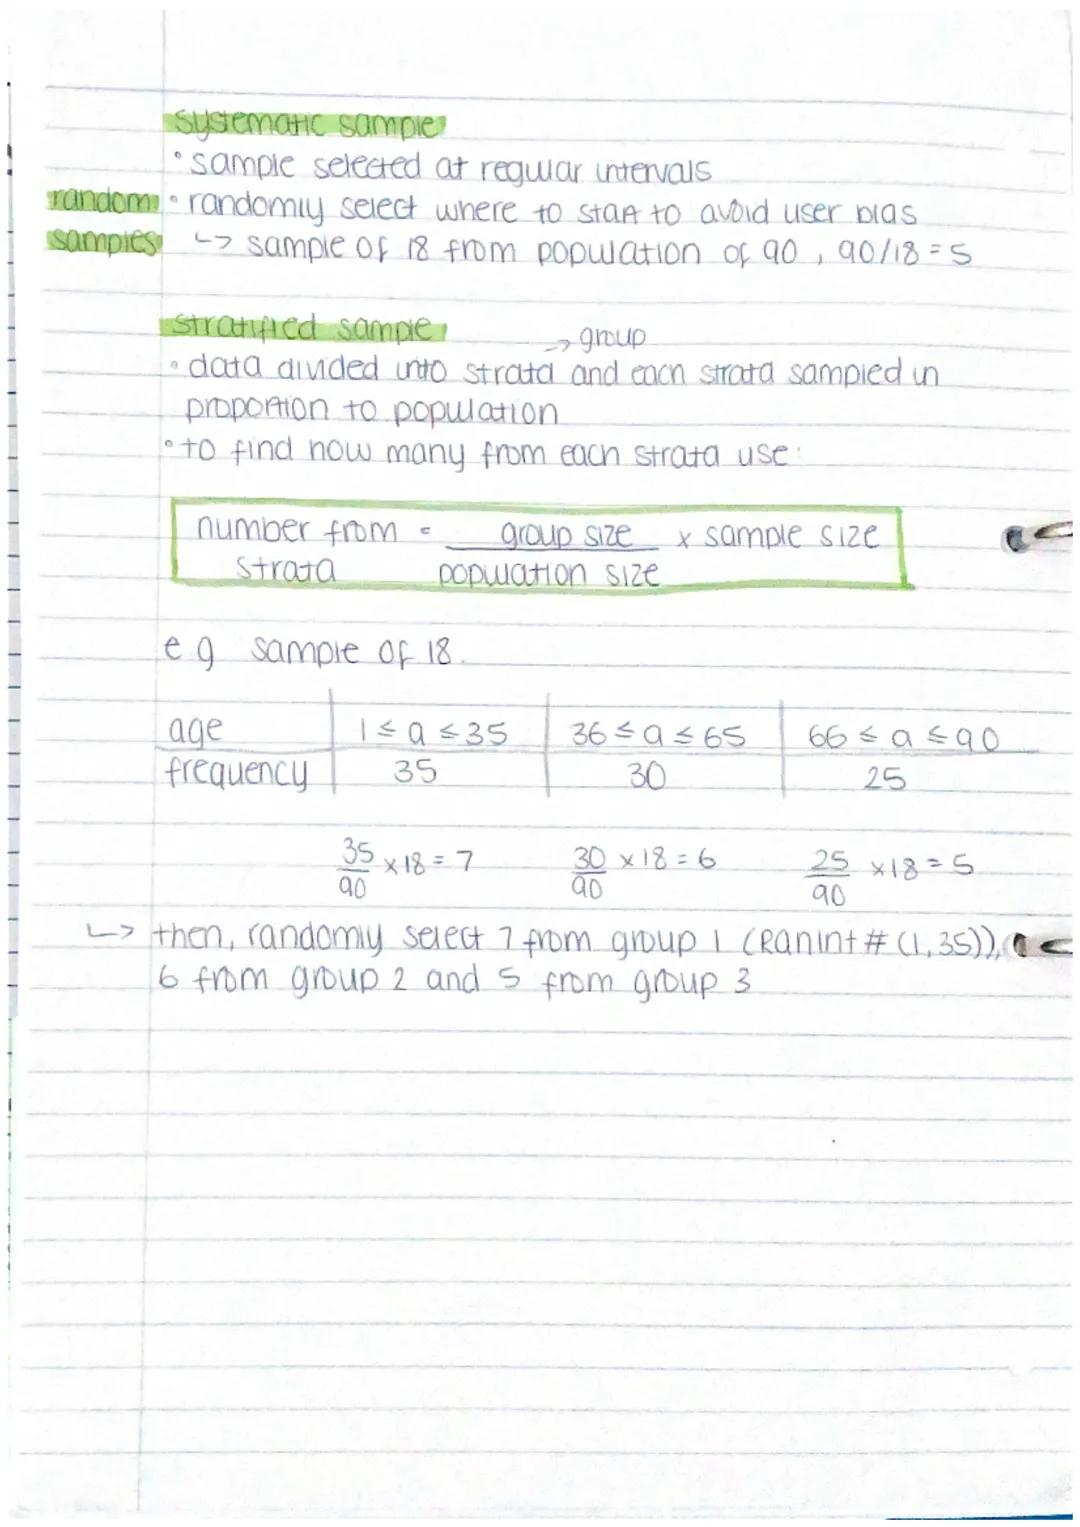 systematic sample
• sample selected at regular intervals
random • randomly select where to start to avoid user bias
samples ↳ sample of 18 from population of 90, 90/18 = 5
stratified sample
→ group
• data divided into strata and each strata sampled in
proportion to population
• to find how many from each strata use:
number from = group size x sample size
strata population size
eg sample of 18.
age 1 ≤ a ≤ 35 36 ≤ a ≤ 65 66 ≤ a ≤ 90
frequency 35 30 25
35/90 x 18 = 7 30/90 x 18 = 6 25/90 x 18 = 5
↳ then, randomly select 7 from group 1 (RanInt # (1, 35)),
6 from group 2 and 5 from group 3